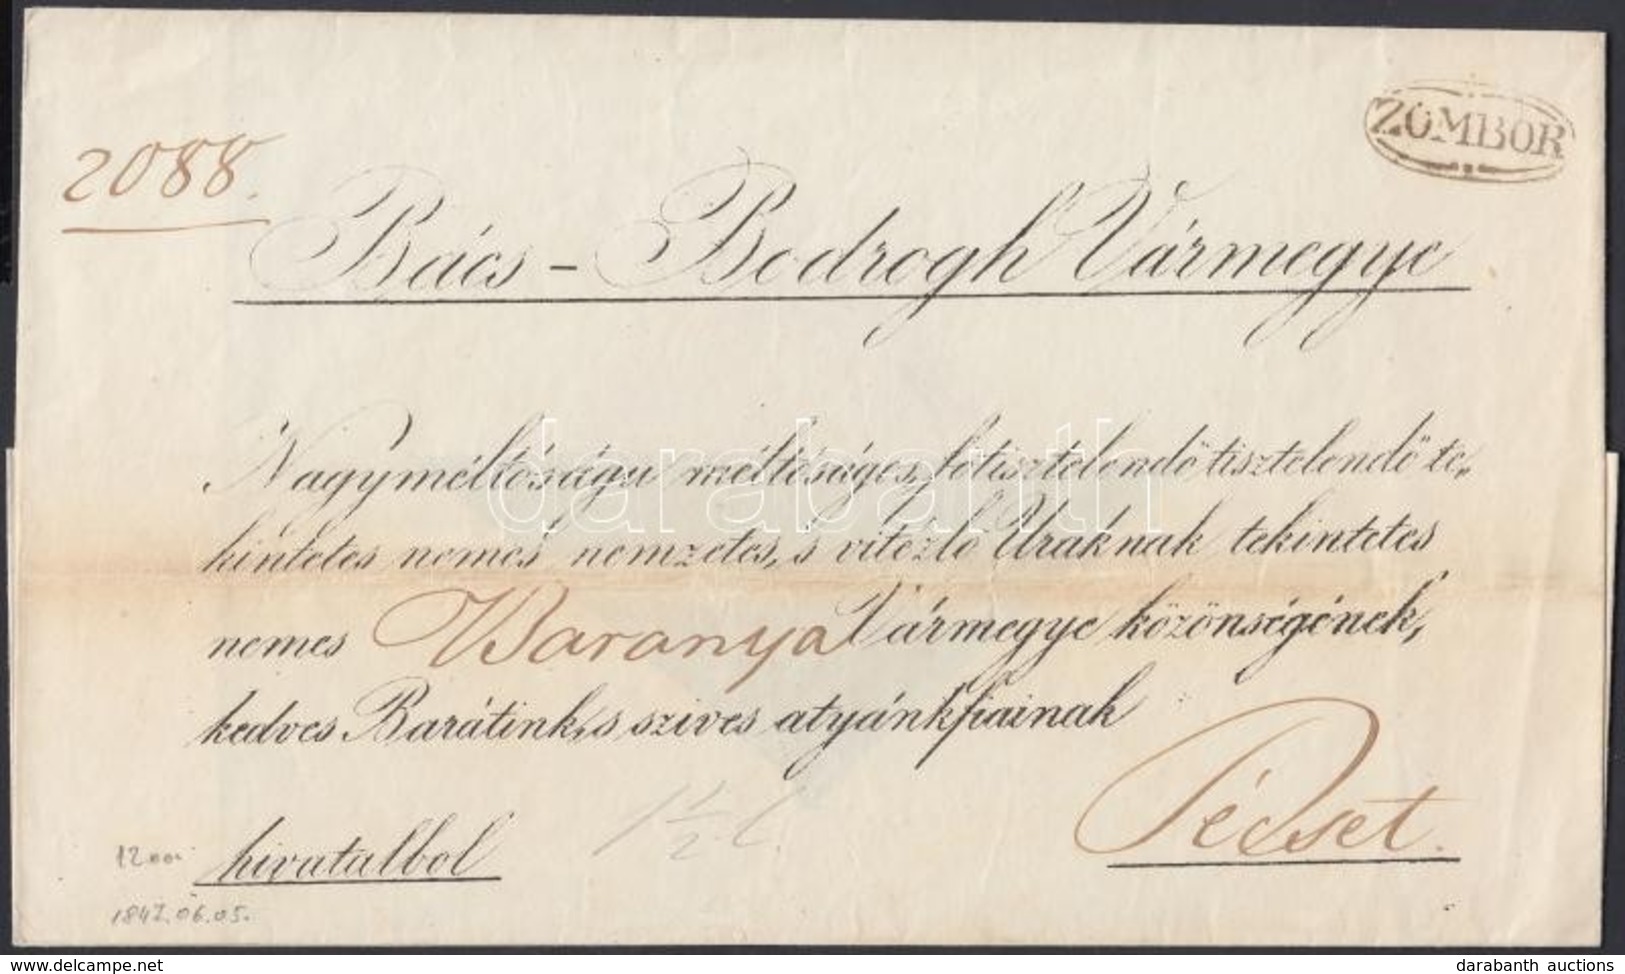 ZOMBOR
2088.
Bács - Bodrogh Vármegye
Nagyméltóságu méltóságos, főtisztelendő tisztelendő te,,
kintetes nemes nemzetes, s vitézlő Uraknak tekintetes
nemes Baranya Vármegye közönségének,
kedves Barátink, s szives atyánkfiainak
Pécset.
hivatalbol
1200
1847.06.05.
darabanth
www.delcampe.net
darabanth auctions